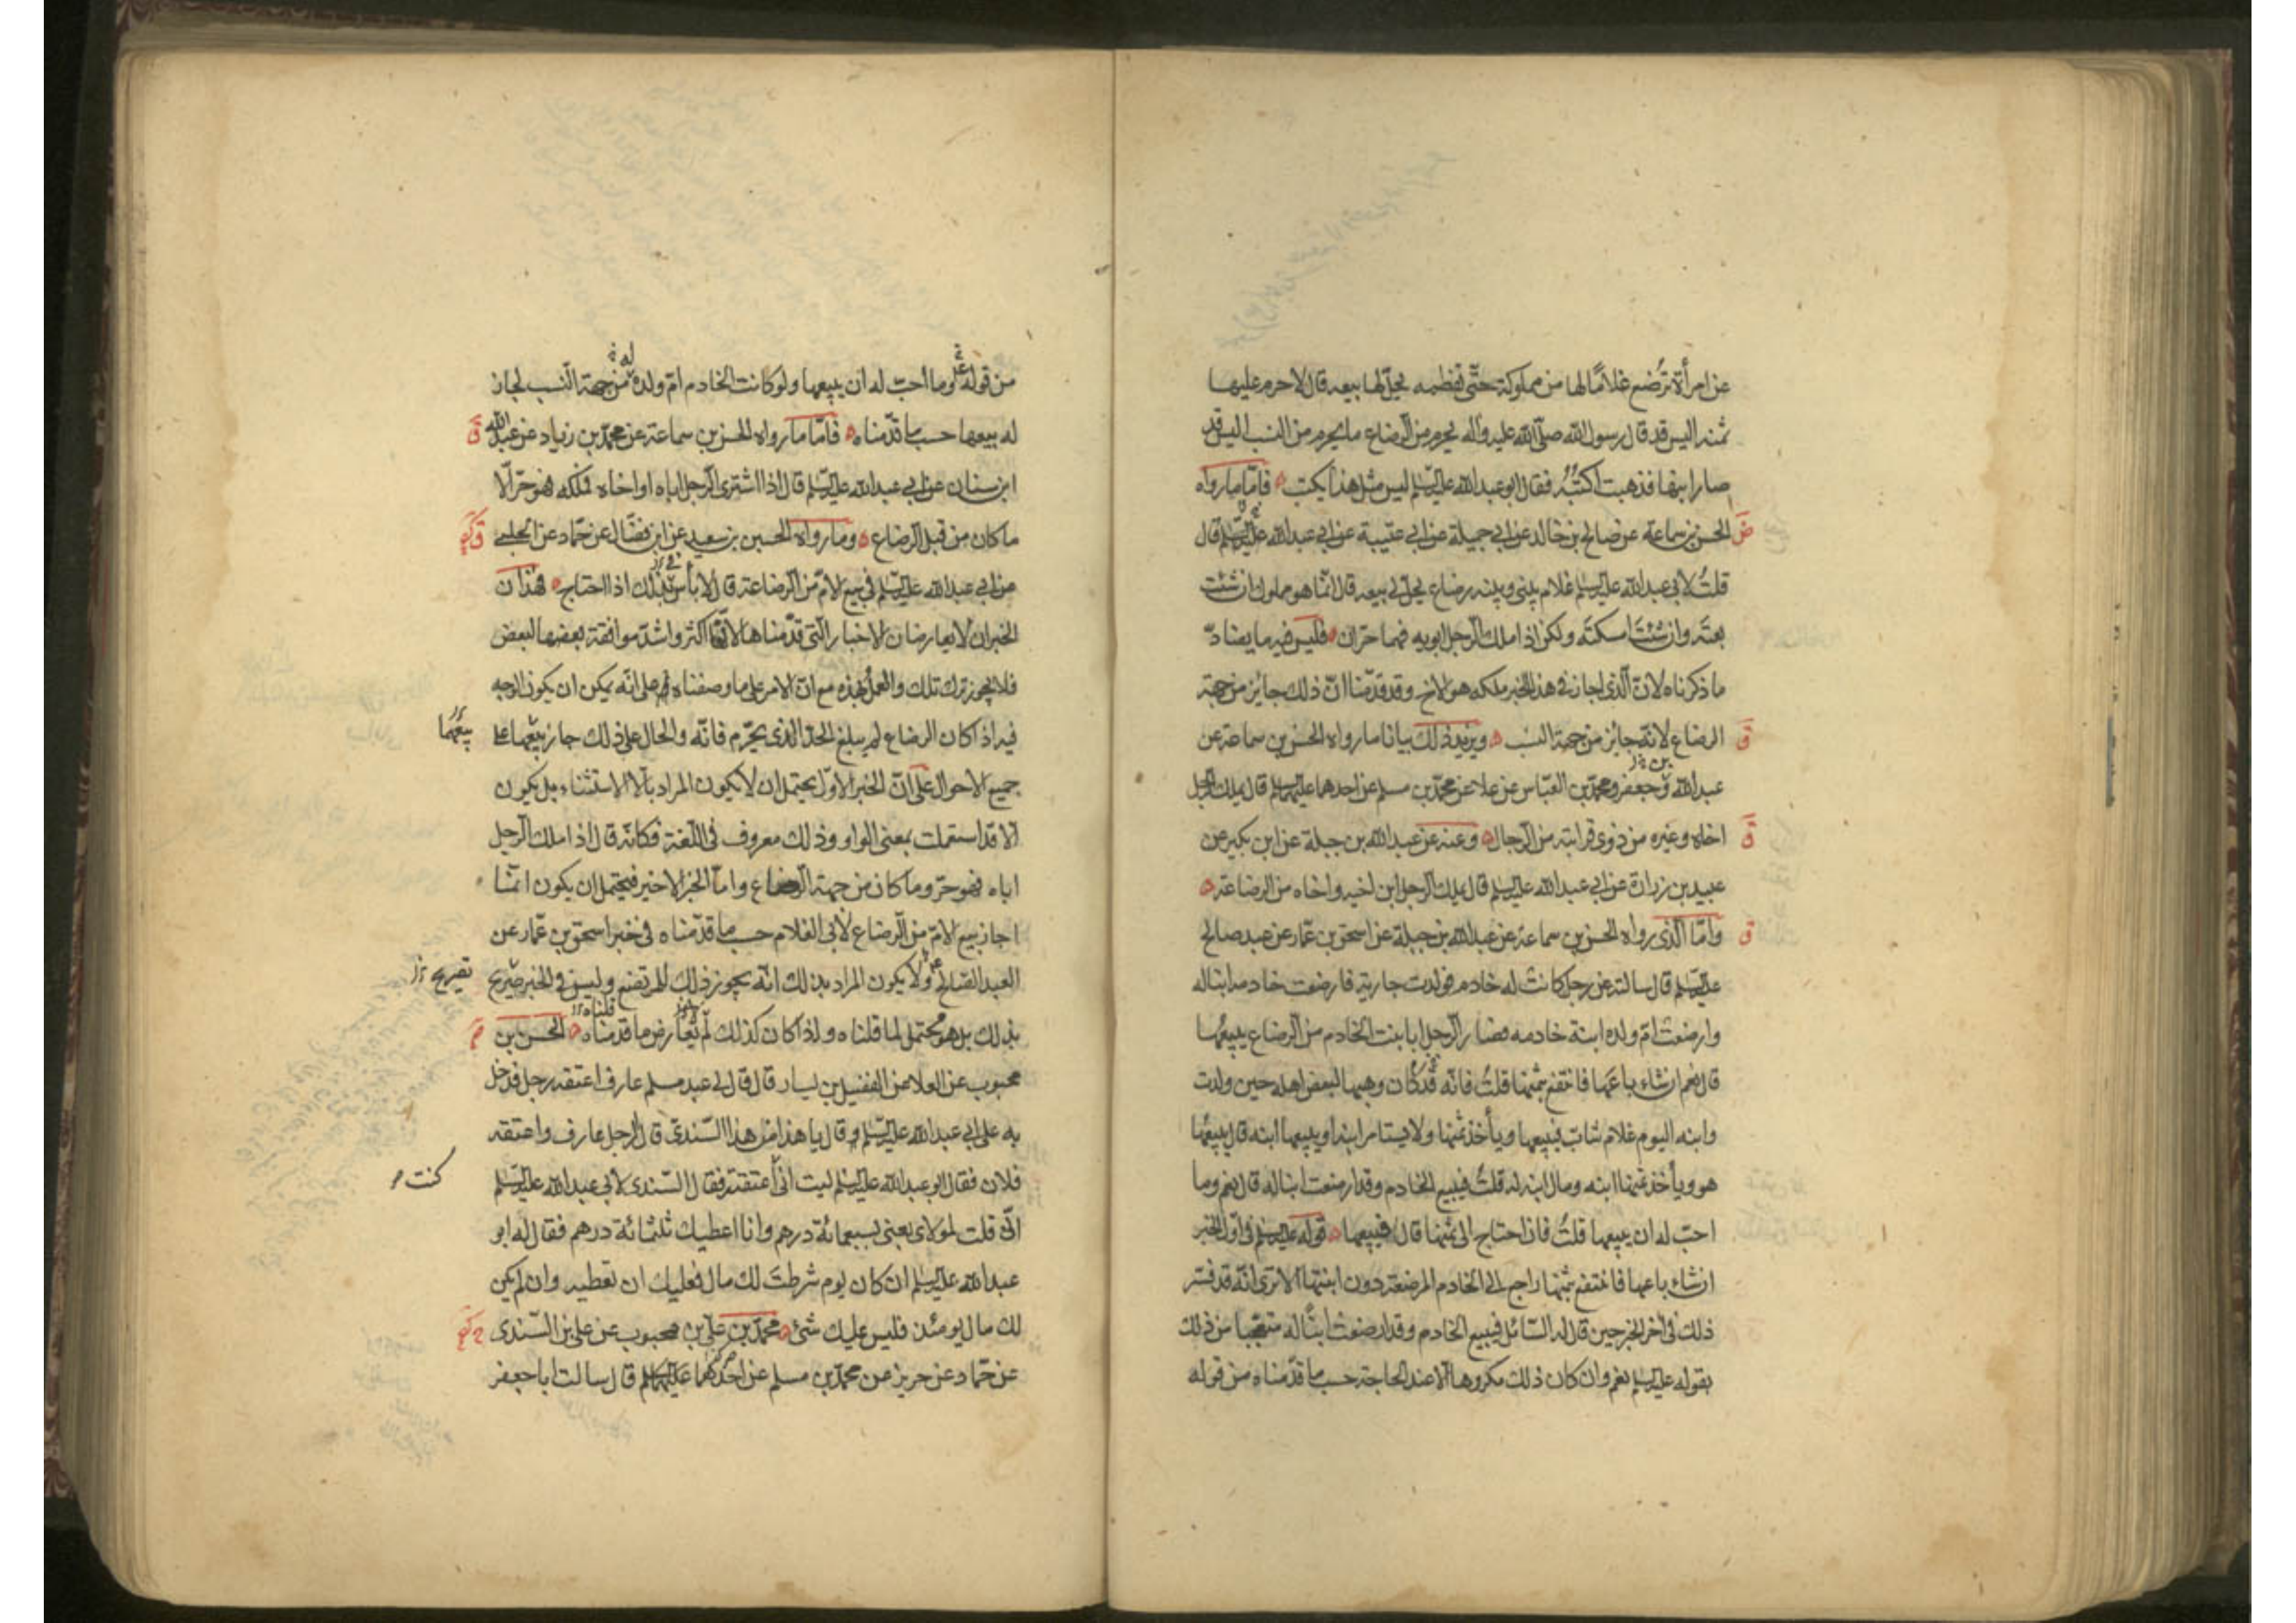 عن امرأة تُرضع غلامًا لها من مملوكة حتّى تفطمه يحلّ لها بيعه قال لا حرم عليها
ثمنه اليس قد قال رسول الله صلّى الله عليه وآله يحرم من الرضاع ما يحرم من النسب اليس قد
صار ابنها فذهبت اكتبُه فقال ابو عبد الله عليه السلم ليس مثل هذا يكتب فامّا ما رواه
الحسن بن سماعة عن صالح بن خالد عن ابي جميلة عن ابي عتيبة عن ابي عبد الله عليه السلم قال
قلتُ لابي عبد الله عليه السلم غلام بيني وبينه رضاع يحلّ لي بيعه قال انّما هو مملوك ان شئت
بعتَه وان شئتَ امسكتَه ولكن اذا ملك الرجل ابويه فهما حرّان فليس فيه ما يضادّ
ما ذكرناه لانّ الّذي اجاز في هذا الخبر ملكه هو الاخ وقد قدّمنا انّ ذلك جايز من جهة
ق الرضاع لانّه جائز من جهة النسب ويزيد ذلك بيانا ما رواه الحسن بن سماعة عن
عبد الله وجعفر ومحمّد بن العبّاس عن علا عن محمّد بن مسلم عن احدهما عليهما السلم قال يملك الرجل
ق اخاه وغيره من ذوي قرابته من الرجال وعنه عن عبد الله بن جبلة عن ابن بكير عن
عبيد بن زرارة عن ابي عبد الله عليه السلم قال يملك الرجل ابن اخيه واخاه من الرضاعة
ق وامّا الّذي رواه الحسن بن سماعة عن عبد الله بن جبلة عن اسحق بن عمّار عن عبد صالح
عليه السلم قال سالته عن رجل كانت له خادم فولدت جارية فارضعت خادمه ابنا له
وارضعت امّ ولده ابنة خادمه فصار الرجل ابا بنت الخادم من الرضاع يبيعها
قال نعم ان شاء باعها فانتفع بثمنها قلتُ فانّه قد كان وهبها لبعض اهله حين ولدت
وابنه اليوم غلام شابّ فيبيعها ويأخذ ثمنها ولا يستامر ابنه او يبيعها ابنه قال يبيعها
هو ويأخذ ثمنها ابنه ومال ابنه له قلتُ فيبيع الخادم وقد ارضعت ابنا له قال نعم وما
احبّ له ان يبيعها قلتُ فان احتاج الى ثمنها قال فيبيعها قوله عليه السلم في اوّل الخبر
ان شاء باعها فانتفع بثمنها راجع الى الخادم المرضعة دون ابنتها الا ترى انّه قد فسّر
ذلك في اخر الخبر حين قال له السّائل فيبيع الخادم وقد ارضعت ابنا له متعجّبا من ذلك
بقوله عليه السلم نعم وان كان ذلك مكروها الّا عند الحاجة حسب ما قدّمناه من قوله
من قوله وما احبّ له ان يبيعها ولو كانت الخادم امّ ولده من جهة النّسب لجاز
له بيعها حسب ما قدّمناه فامّا ما رواه الحسن بن سماعة عن محمّد بن زياد عن عبد الله ق
ابن سنان عن ابي عبد الله عليه السلم قال اذا اشترى الرجل اباه او اخاه فملكه فهو حرّ الّا
ما كان من قبل الرضاع وما رواه الحسين بن سعيد عن ابن فضّال عن حمّاد عن الحلبي
عن ابي عبد الله عليه السلم في بيع الامّ من الرضاعة قال لا بأس بذلك اذا احتاج فهذان
الخبران لا يعارضان الاخبار الّتي قدّمناها لانّها اكثر واشدّ موافقة بعضها لبعض
فلا يجوز ترك تلك والعمل بهذه مع انّ الامر على ما وصفناه على انّه يمكن ان يكون الوجه
فيه اذا كان الرضاع لم يبلغ الحدّ الذي يحرّم فانّه والحال على ذلك جاز بيعها على بيعهما
جميع الاحوال على انّ الخبر الاوّل يحتمل ان لا يكون المراد بالّا الاستثناء بل يكون
الّا قد استعملت بمعنى الواو وذلك معروف في اللّغة فكانّه قال اذا ملك الرجل
اباه فهو حرّ وما كان من جهة الرضاع وامّا الخبر الاخير فيحتمل ان يكون انّما
اجاز بيع الامّ من الرّضاع لابي الغلام حسب ما قدّمناه في خبر اسحق بن عمّار عن
العبد الصّالح ولا يكون المراد بذلك انّه يجوز ذلك للمرتضع وليس في الخبر صريح تصريح
بذلك بل هو محتمل لما قلناه واذا كان كذلك لم يعارض ما قدمناه الحسن بن
محبوب عن العلا عن الفضيل بن يسار قال قال لي عبد مسلم عارف اعتقه رجل فدخل
به على ابي عبد الله عليه السلم وقال يا هذا من هذا السّندي قال الرجل عارف واعتقه
فلان فقال ابو عبد الله عليه السلم ليت انّي اعتقته فقال السّندي لابي عبد الله عليه السلم كنت
انّي قلت لمولاي بعني بسبعمائة درهم وانا اعطيك ثلثمائة درهم فقال له ابو
عبد الله عليه السلم ان كان يوم شرطتَ لك مال فعليك ان تعطيه وان لم يكن
لك مال يومئذ فليس عليك شئ محمّد بن علي بن محبوب عن علي بن السّندي
عن حمّاد عن حريز عن محمّد بن مسلم عن احدهما عليهما السلم قال سالت ابا جعفر